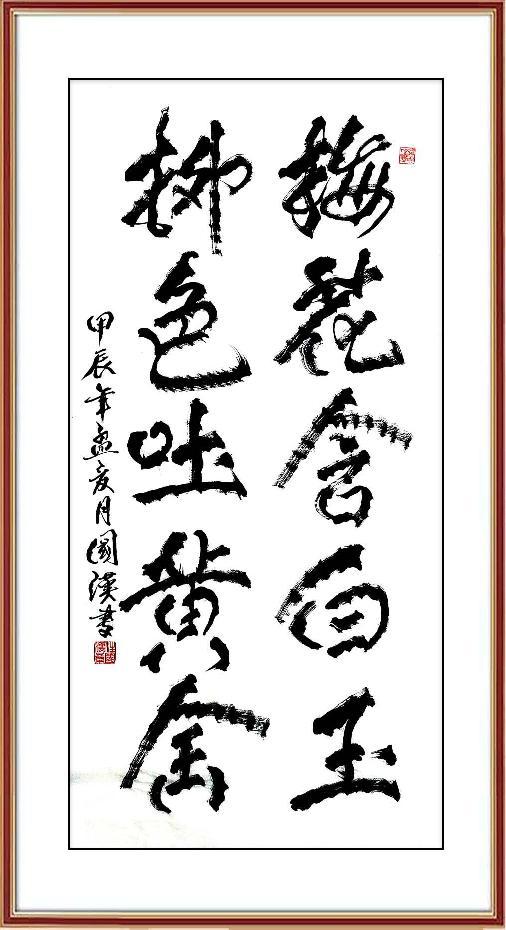 梅花含白玉
柳色吐黄金
甲辰年孟夏月国汉书